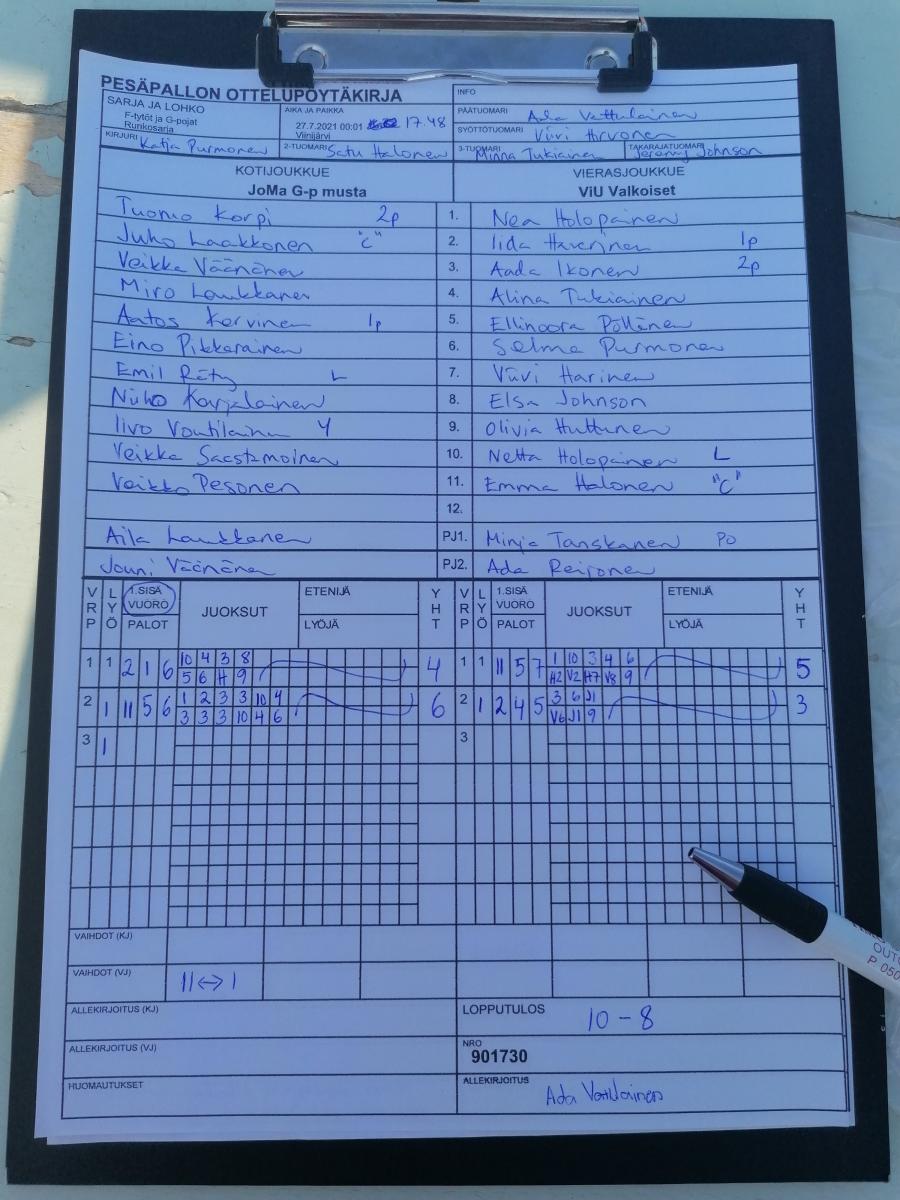 PESÄPALLON OTTELUPÖYTÄKIRJA
INFO
SARJA JA LOHKO
F-tytöt ja G-pojat
Runkosarja
AIKA JA PAIKKA
27.7.2021 00:01 17.48
Viinijärvi
PÄÄTUOMARI Ada Vattulainen
SYÖTTÖTUOMARI Viivi Hirvonen
KIRJURI Katja Purmonen
2-TUOMARI Satu Halonen
3-TUOMARI Minna Tukiainen
TAKARAJATUOMARI Jeremy Johnson
KOTIJOUKKUE
JoMa G-p musta
VIERASJOUKKUE
ViU Valkoiset
Tuomo Korpi 2p 1. Nea Holopainen
Juho Laakkonen "C" 2. Iida Haverinen 1p
Veikka Väänänen 3. Aada Ikonen 2p
Miro Laukkanen 4. Alina Tukiainen
Aatos Korvinen 1p 5. Ellinoora Pöllänen
Eino Pikkarainen 6. Selma Purmonen
Emil Räty L 7. Viivi Harinen
Niilo Karjalainen 8. Elsa Johnson
Iivo Voutilainen Y 9. Olivia Huttunen
Veikka Saastamoinen 10. Netta Holopainen L
Veikko Pesonen 11. Emma Halonen "C"
12.
Aila Laukkanen PJ1. Minja Tanskanen PO
Jouni Väänänen PJ2. Ada Reijonen
VRP LYÖ 1.SISÄ VUORO PALOT JUOKSUT ETENIJÄ LYÖJÄ YHT VRP LYÖ 1.SISÄ VUORO PALOT JUOKSUT ETENIJÄ LYÖJÄ YHT
1 1 2 1 6 10 4 3 8 4 1 1 11 5 7 1 10 3 4 6 5
5 6 H 9 H2 V2 H7 V8 9
2 1 11 5 6 1 2 3 3 10 4 6 2 1 2 4 5 3 6 J1 3
3 3 3 10 4 6 V6 J1 9
3 1 3
VAIHDOT (KJ)
VAIHDOT (VJ) 11 ↔ 1
ALLEKIRJOITUS (KJ) LOPPUTULOS 10 - 8
ALLEKIRJOITUS (VJ) NRO
901730
HUOMAUTUKSET ALLEKIRJOITUS
Ada Vattulainen
OUTO
P. 050